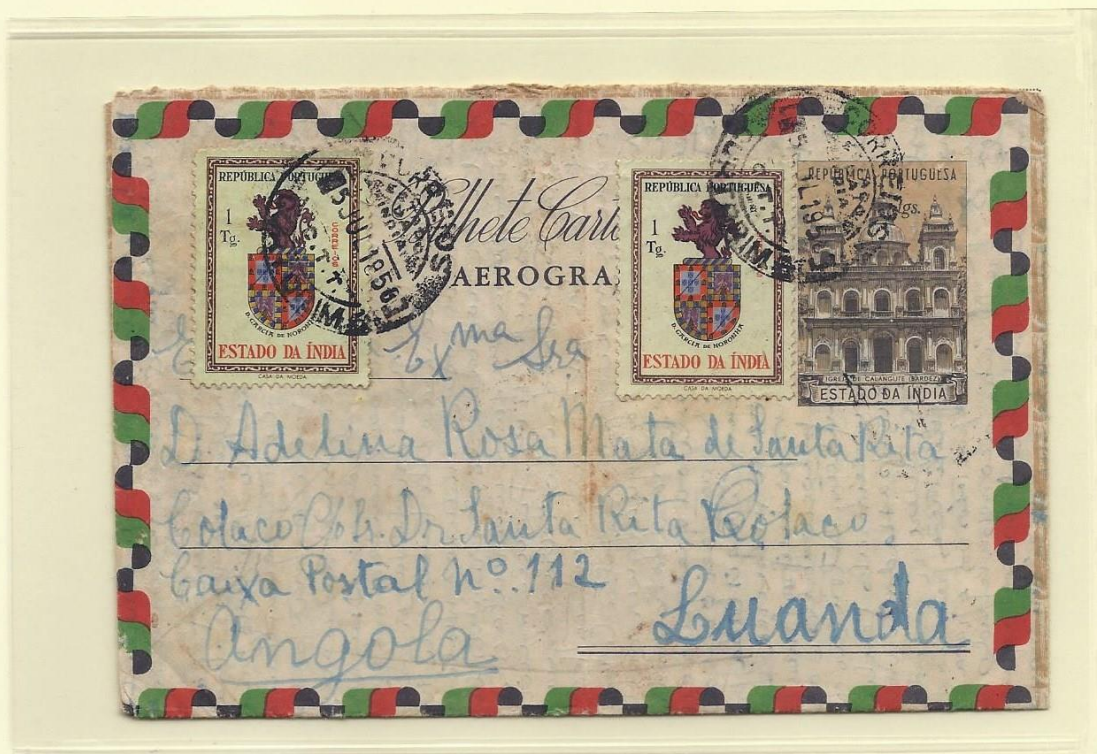 REPÚBLICA PORTUGUESA
1
Tg.
CORREIOS
D. GARCIA DE NORONHA
ESTADO DA ÍNDIA
CASA DA MOEDA
CORREIOS
5 JUL 1956
C.T.T.
lhete Carta
AEROGRA
REPÚBLICA PORTUGUESA
1
Tg.
D. GARCIA DE NORONHA
ESTADO DA ÍNDIA
CASA DA MOEDA
CORREIOS
C.T.T.
REPÚBLICA PORTUGUESA
gs.
IGREJA DE CALANGUTE (BARDEZ)
ESTADO DA ÍNDIA
Exma Sra
D. Adelina Rosa Mata de Santa Rita
Colaco Dr. Santa Rita Colaco
Caixa Postal Nº. 112
Luanda
Angola